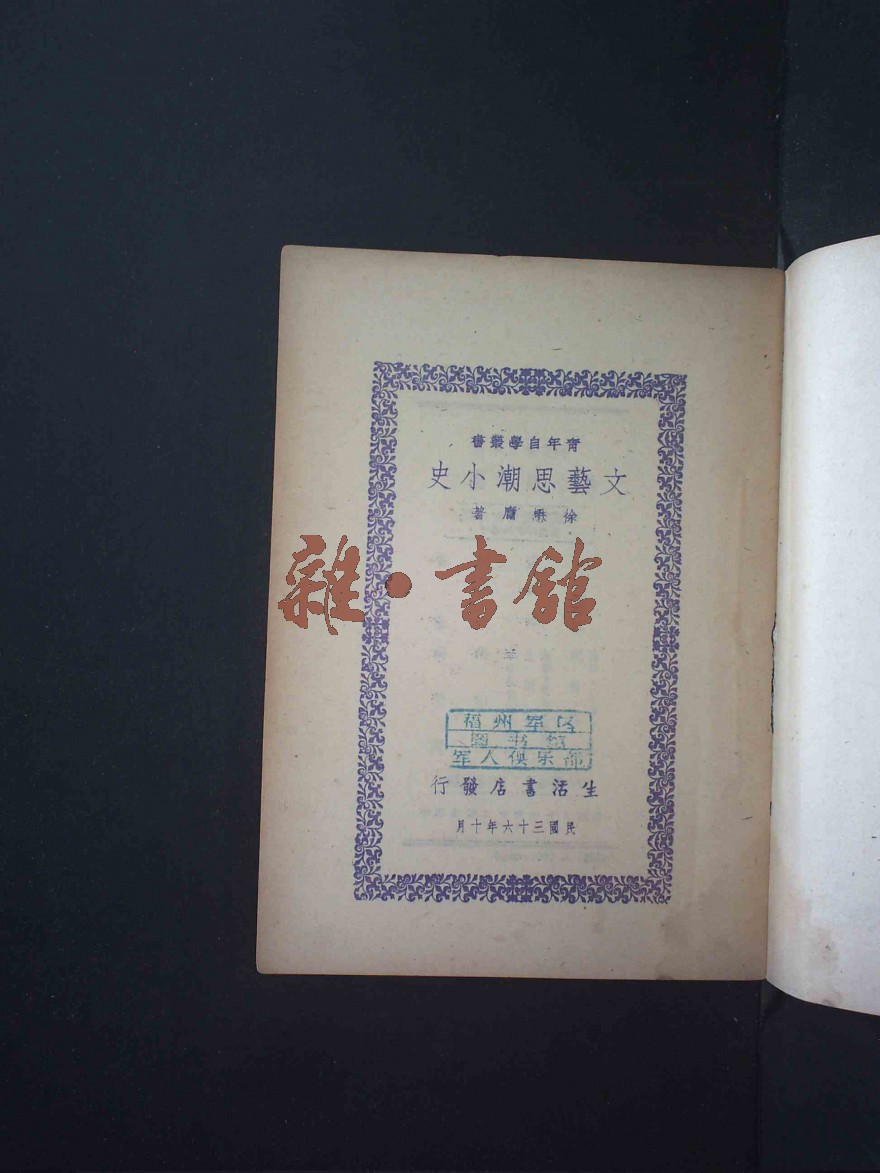 青年自學叢書
文藝思潮小史
徐懋庸著
雜·書館
福州军区
图书馆
军人俱乐部
生活書店發行
民國三十六年十月